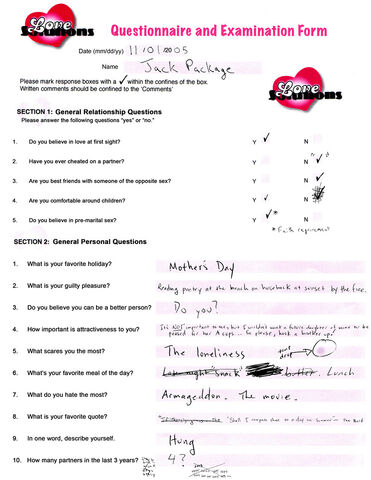 Love Solutions
Questionnaire and Examination Form
Date (mm/dd/yy) 11/01/2005
Name Jack Package
Please mark response boxes with a ✓ within the confines of the box.
Written comments should be confined to the 'Comments'
Love Solutions
SECTION 1: General Relationship Questions
Please answer the following questions "yes" or "no."
1. Do you believe in love at first sight? Y ✓ N
2. Have you ever cheated on a partner? Y N ✓
3. Are you best friends with someone of the opposite sex? Y N ✓
4. Are you comfortable around children? Y ✓ N
5. Do you believe in pre-marital sex? Y ✓* N
*Faith requirement
SECTION 2: General Personal Questions
1. What is your favorite holiday? Mother's Day
2. What is your guilty pleasure? Reading poetry at the beach on horseback at sunset by the fire.
3. Do you believe you can be a better person? Do you?
4. How important is attractiveness to you? It's NOT important to me, but I wouldn't want a future daughter of mine to be
teased for her A cups... So please, back a brother up.
5. What scares you the most? The loneliness
tear drop
6. What's your favorite meal of the day? Late night "snack" butter. Lunch
7. What do you hate the most? Armageddon. The movie.
8. What is your favorite quote? "Shall I compare thee to a day in summer" - The Bard
9. In one word, describe yourself. Hung
10. How many partners in the last 3 years? 4?